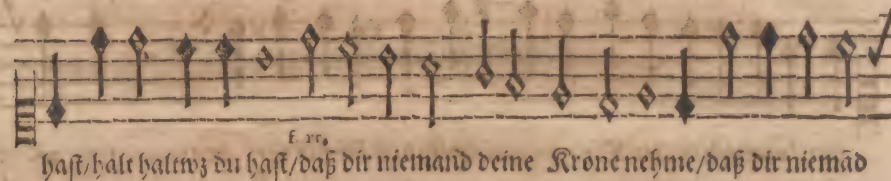 f. xx.
hast/halt haltwz du hast/daß dir niemand deine Krone nehme/daß dir niemãd